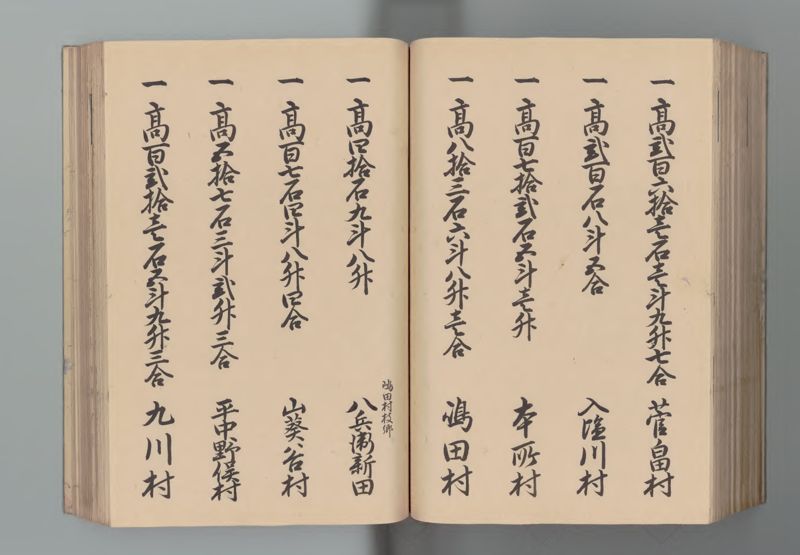 一 高弐百六拾壱石壱斗九升七合 菅畠村
一 高弐百石八斗五合 入塩川村
一 高百七拾弐石五斗壱升 本所村
一 高八拾三石六斗八升壱合 嶋田村
嶋田村枝郷
一 高四拾石九斗八升 八兵衛新田
一 高百七石四斗八升四合 山葵谷村
一 高五拾七石三斗弐升三合 平中野俣村
一 高百弐拾壱石五斗九升三合 九川村